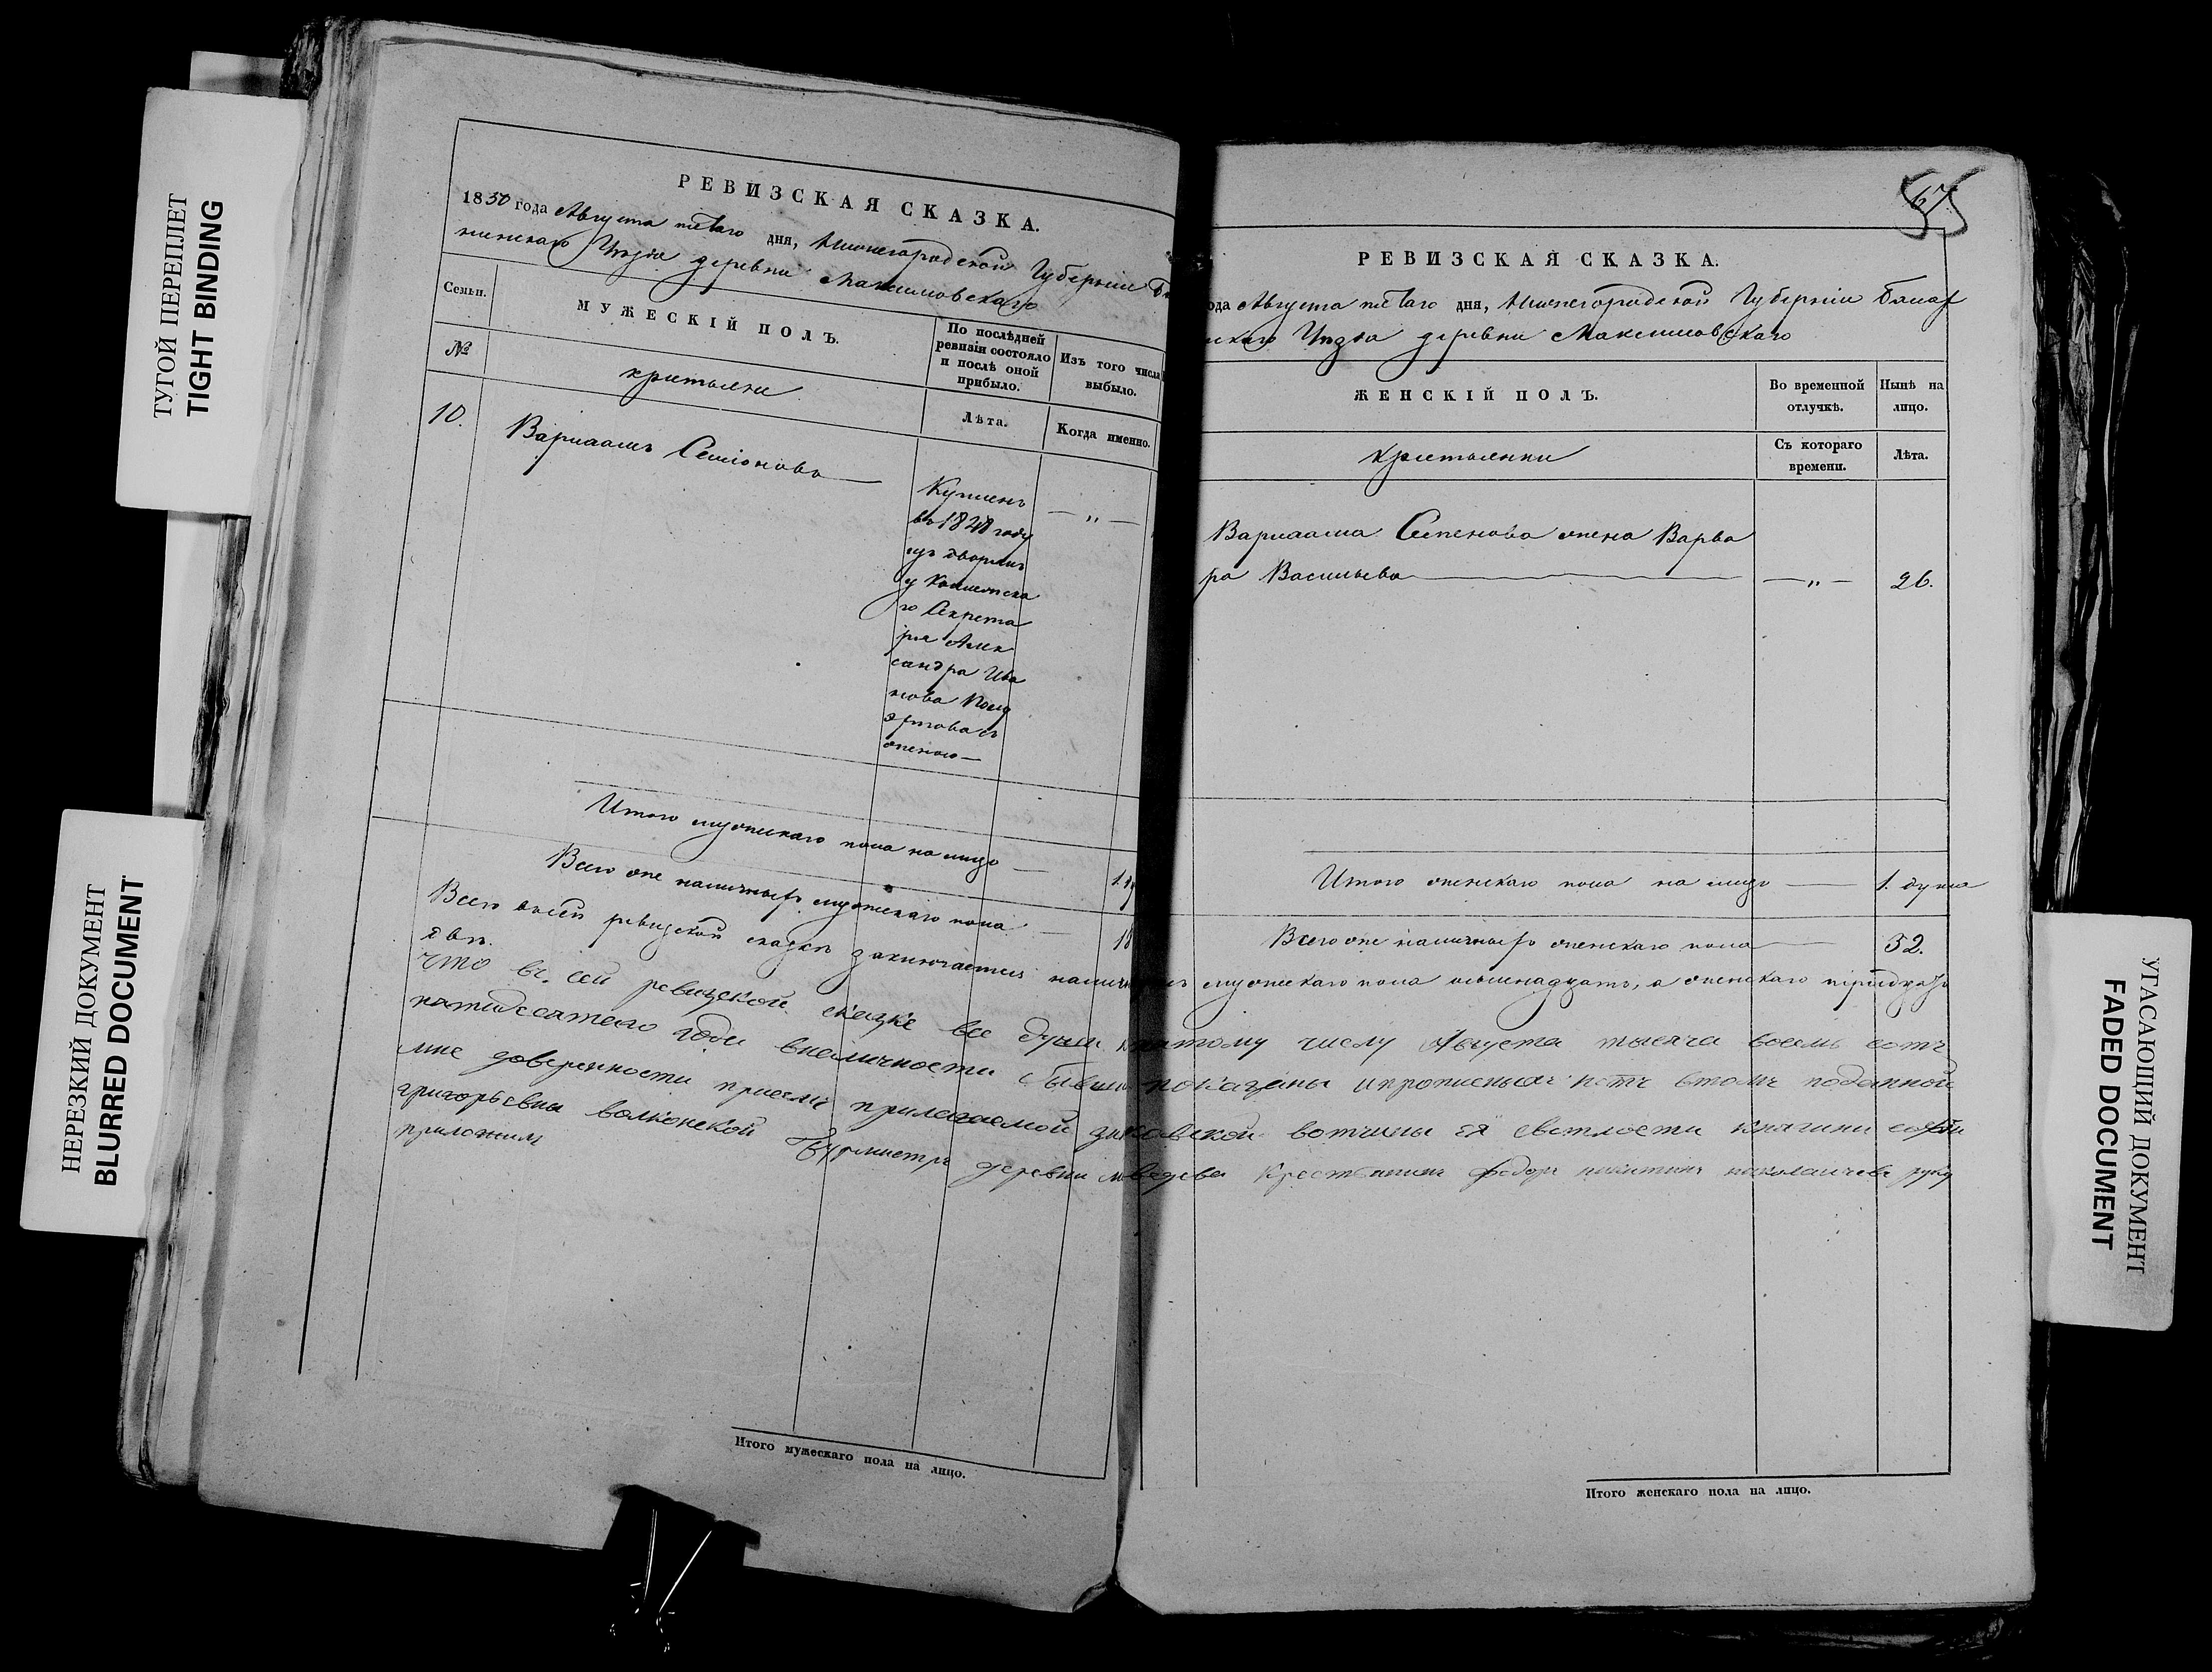 ТУГОЙ ПЕРЕПЛЕТ
TIGHT BINDING
НЕРЕЗКИЙ ДОКУМЕНТ
BLURRED DOCUMENT
РЕВИЗСКАЯ СКАЗКА.
1850 года Августа пятаго дня, Нижегородской Губерніи
Уѣзда деревни Максимовскаго
Семьи.
МУЖЕСКІЙ ПОЛЪ.
По послѣдней ревизіи состояло и послѣ оной прибыло.
Изъ того числа выбыло.
№
крестьяне
Лѣта.
Когда именно.
10.
Варлаамъ Семіоновъ
Купленъ
въ 1848 году
изъ дворянъ
у Коллежска
го Секрета
ря Алек
сандра Ива
нова
съ
женою
— „ —
Итого мужескаго пола на лицо — 1
Всего же наличныхъ мужескаго пола — 18
67
РЕВИЗСКАЯ СКАЗКА.
ода Августа пятаго дня, Нижегородской Губерніи Балах
нскаго Уѣзда деревни Максимовскаго
ЖЕНСКІЙ ПОЛЪ.
Во временной отлучкѣ.
Нынѣ на лицо.
крестьянки
Съ котораго времени.
Лѣта.
Варлаама Семенова жена Варва
ра Васильева — „ — 26.
Итого женскаго пола на лицо — 1. душа
Всего же наличныхъ женскаго пола — 32.
Всего въ сей ревизской сказкѣ заключается наличныхъ мужескаго пола осьмнадцать, а женскаго тридцать
двѣ.
что въ сей ревизской сказке все души к пятому числу Августа тысяча восемь сотъ
пятидесятаго года вналичности бывши показаны и прописныхъ нетъ втомъ поданной
мне доверенности присемъ прилагаемой вотчины ея светлости княгини софьи
григорьевны волконской Бурмистръ деревни медведева Крестьянинъ федоръ никитинъ руку
приложилъ
Итого мужескаго пола на лицо.
Итого женскаго пола на лицо.
УГАСАЮЩИЙ ДОКУМЕНТ
FADED DOCUMENT